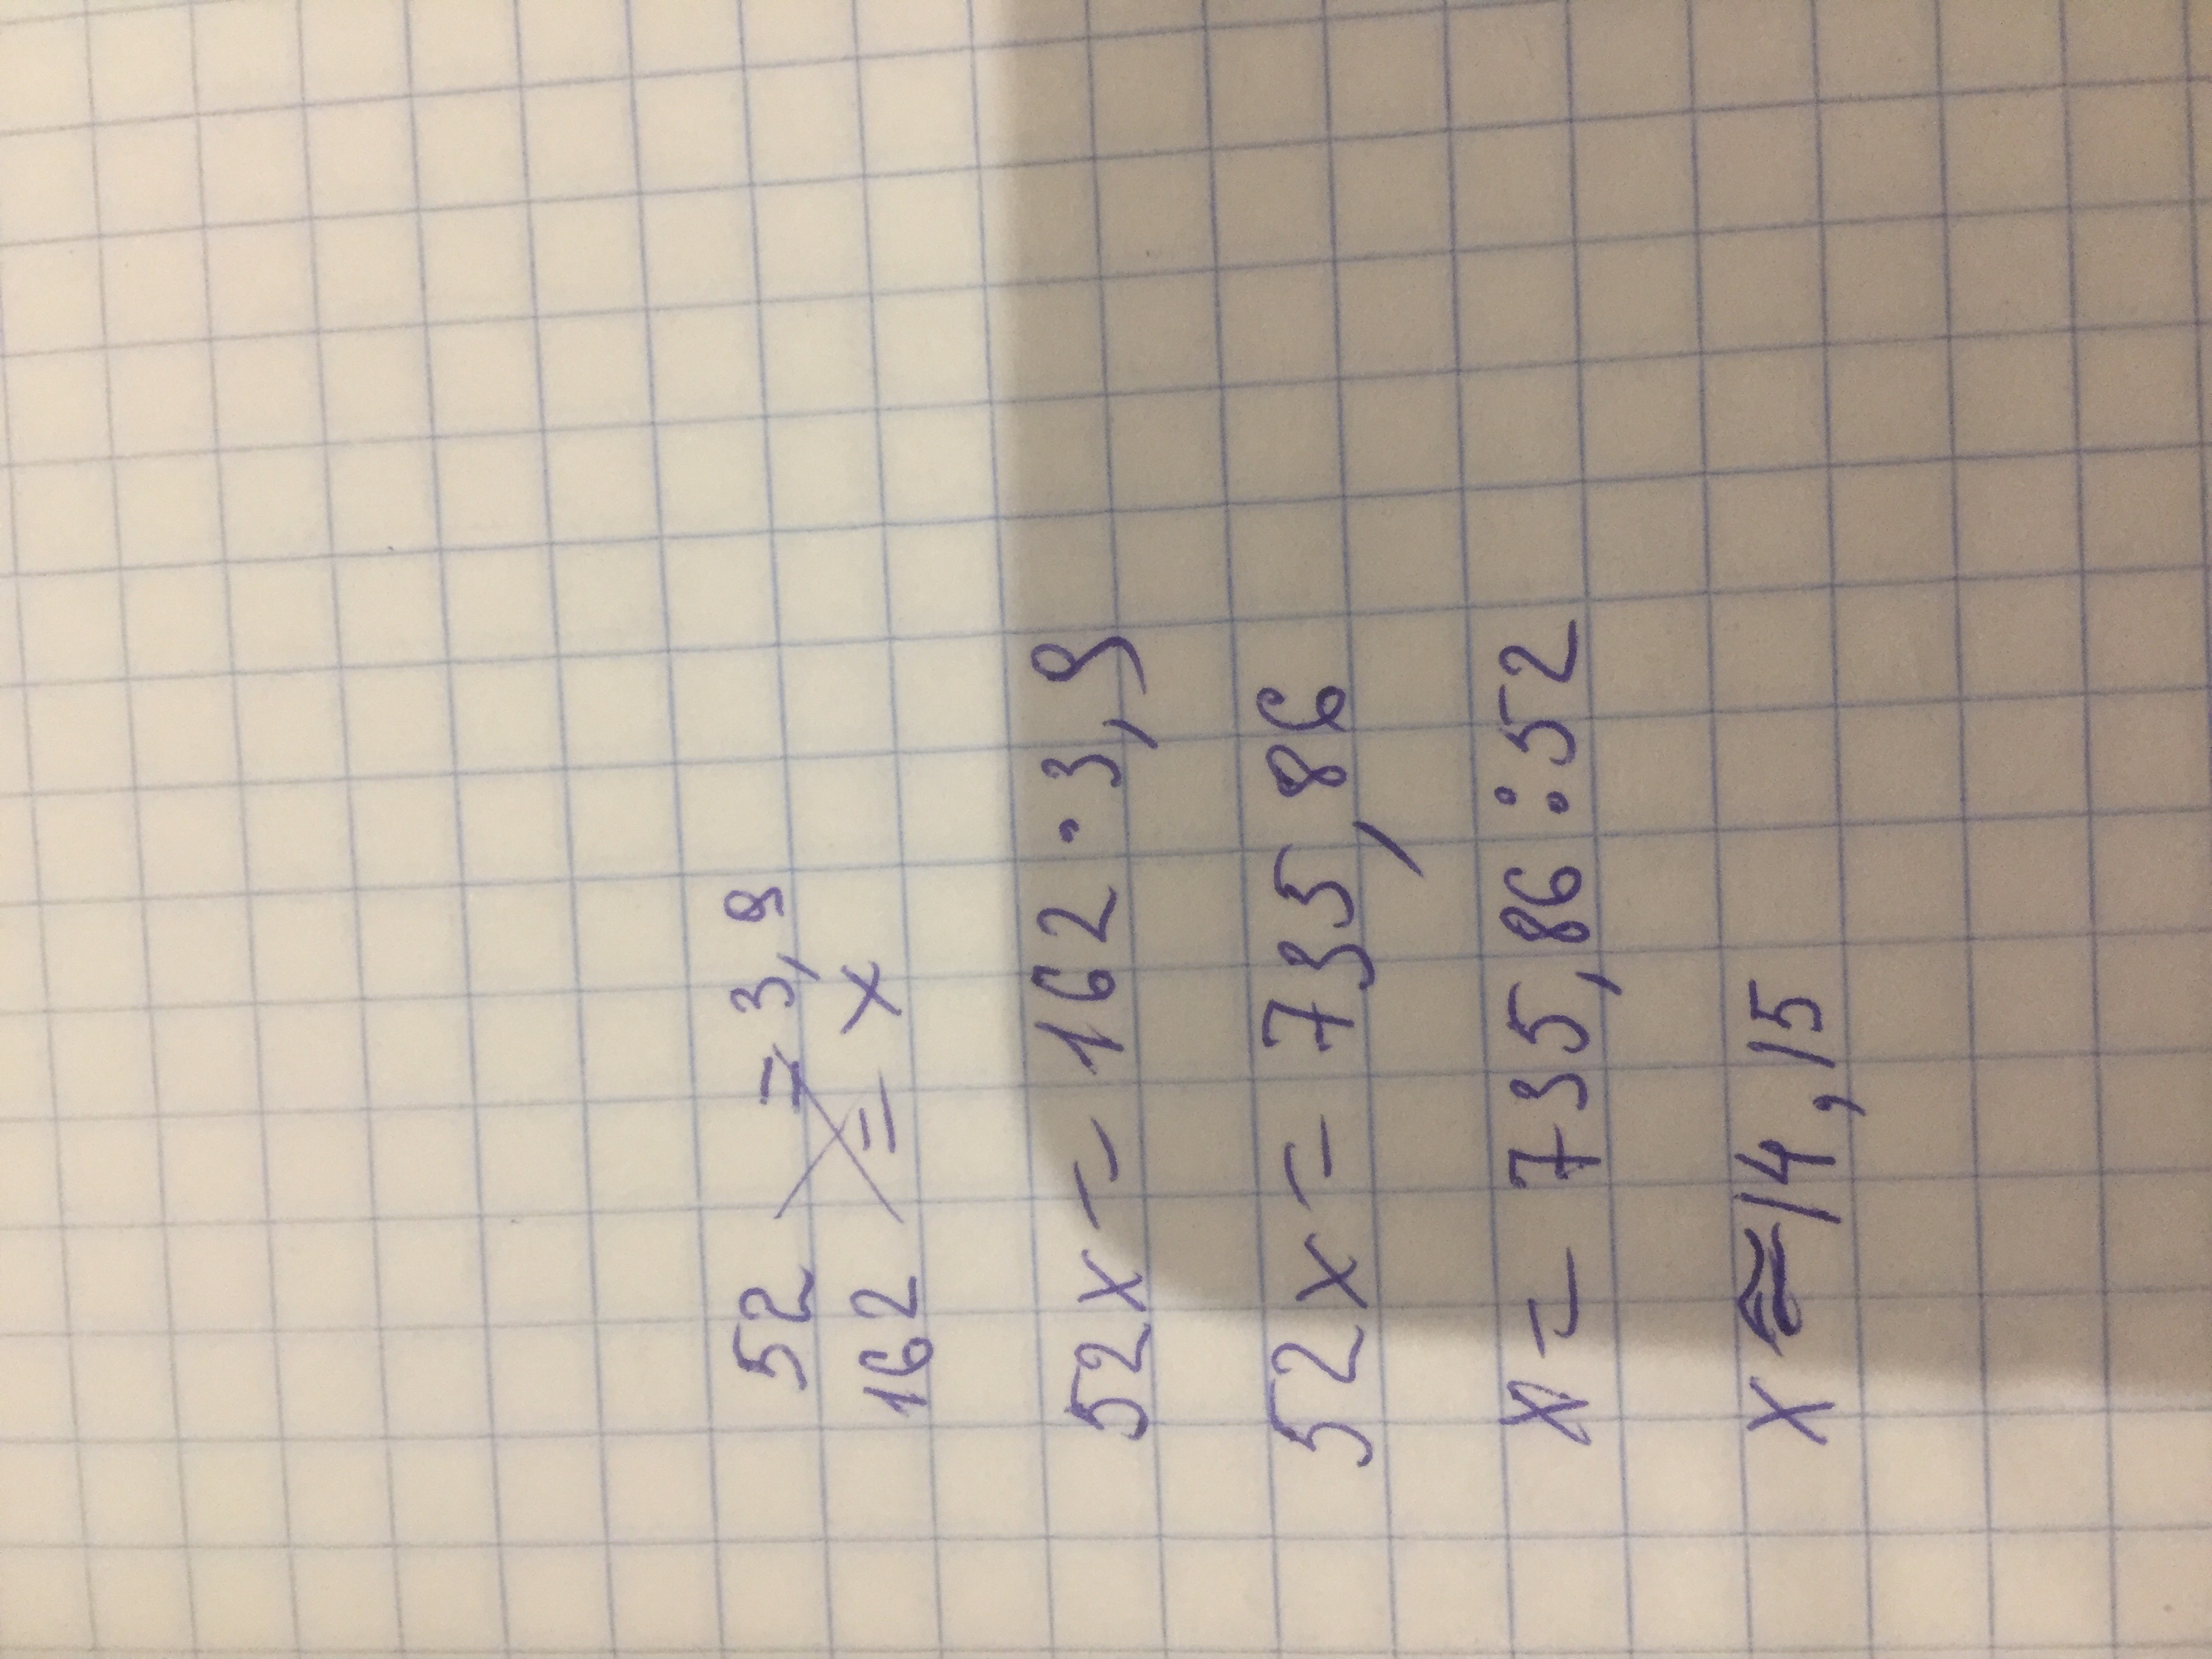 52 = 3,9
162 = x
52x = 162 · 3,9
52x = 735,86
x = 735,86 : 52
x ≈ 14,15